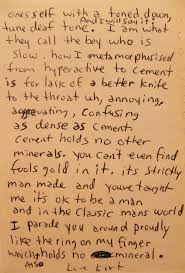 ones self with a toned down
And I will say it!
tune deaf tone. I am what
they call the boy who is
slow. how I metamorphosised
from hyperactive to cement
is for lack of a better knife
to the throat uh, annoying,
aggrevating, confusing
as dense as cement.
cement holds no other
minerals. you can't even find
fools gold in it. its strictly
man made and youve taught
me it's ok to be a man
and in the classic mans world
I parade you around proudly
like the ring on my finger
which holds no mineral.
Also
Love Kurt